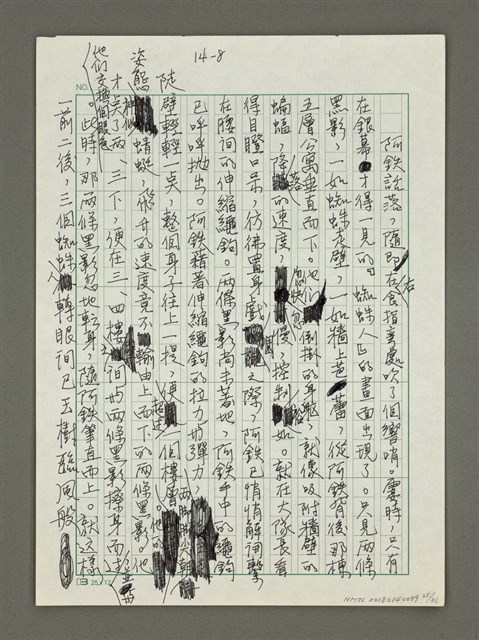 14-8
阿鉄說落,隨即在右食指彎處吹了個響哨。霎時,只有
在銀幕才得一見的「蜘蛛人」的畫面出現了。只見兩條
黑影,一如蜘蛛走壁,一如牆上芭蕾,從阿鉄背後那棟
五層公寓垂直而下。他們倒掛的身軀,就像吸附牆壁的
蝙蝠,降落的速度,忽快忽慢,控制自如。就在大隊長看
得目瞪口呆,彷彿置身戲之際,阿鉄已悄悄解詞擊
在腰間的伸縮繩鉤。兩條黑影尚未著地,阿鉄手中的繩鉤
已呼呼拋出。阿鉄藉著伸縮繩鉤的拉力與彈力,
陡壁輕輕一点,整個身子往上一提,便一個樓層。他的
姿態神似蜻蜓,飛升的速度竟不輸由上而下的兩條黑影。他
才点了兩、三下,便在三、四樓之間與兩條黑影擦身而过
他們交換個眼色
。此時,那兩條黑影忽地轉身,隨阿鉄筆直而上。就这樣
一前二後,三個蜘蛛轉眼间已玉樹臨風般
NO.
25×12
NMTL 20182140089 25/26